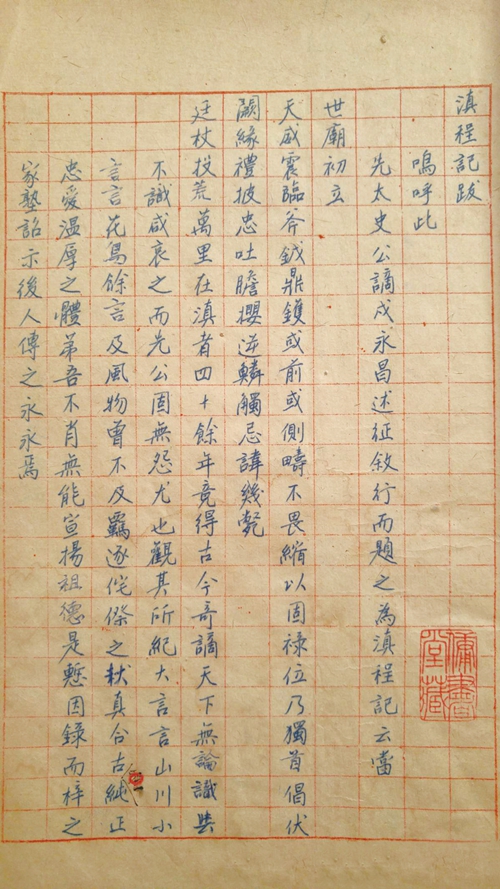 滇程記跋
嗚呼此
先太史公謫戍永昌述征敘行而題之為滇程記云當
世廟初立
天威震臨斧鉞鼎鑊或前或側疇不畏縮以固祿位乃獨首倡伏
闕緣禮披忠吐膽攖逆鱗觸忌諱幾斃
廷杖投荒萬里在滇者四十餘年竟得古今奇謫天下無論識與
不識咸哀之而先公固無怨尤也觀其所紀大言言山川小
言言花鳥餘言及風物曾不及羈逐侘傺之狀真合古純正
忠愛溫厚之體弟吾不肖無能宣揚祖德是慙因錄而梓之
家塾詔示後人傳之永永焉
傭書堂藏